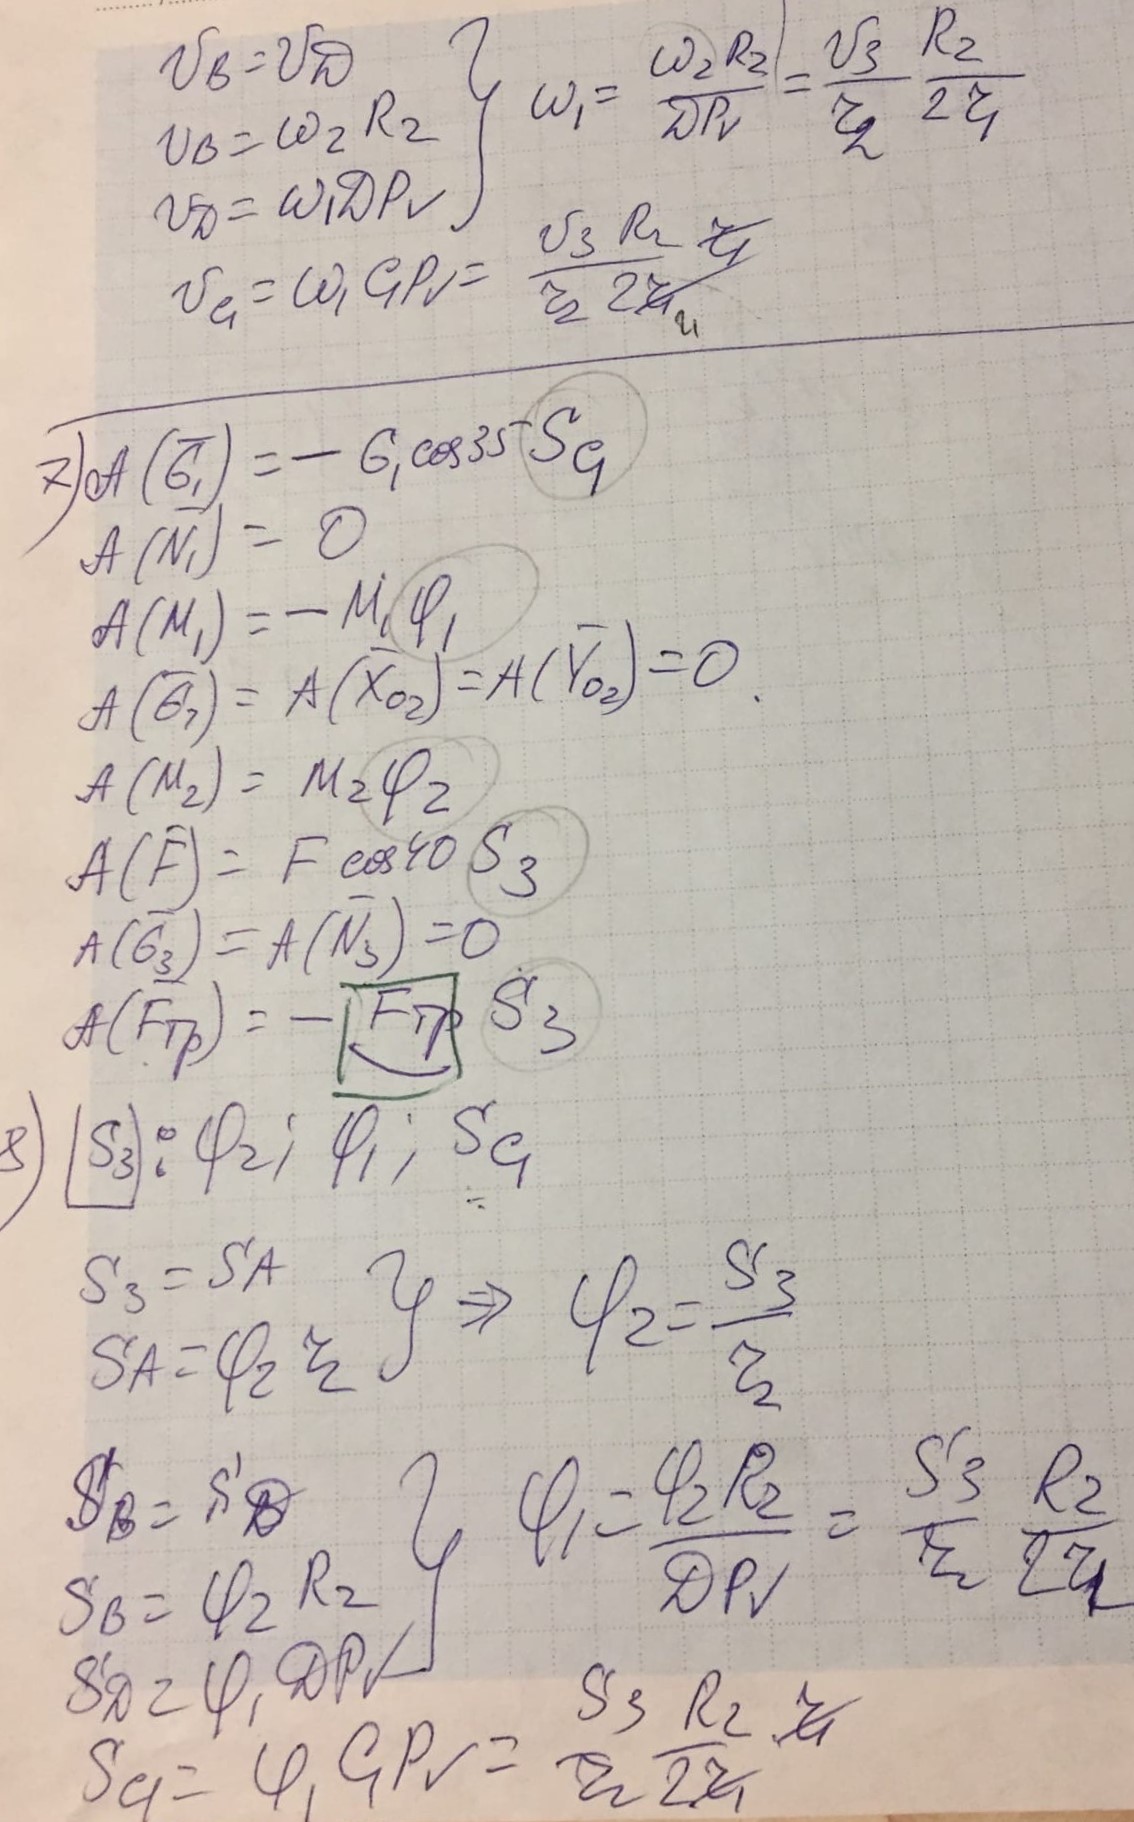 v_B = v_D
v_B = ω_2 R_2
v_D = ω_1 DP_v } ω_1 = ω_2 R_2 / DP_v = v_3 / r_2 R_2 / 2r_1
v_C1 = ω_1 C_1P_v = v_3 R_2 r_1 / r_2 2r_1
7) A(G̅_1) = - G_1 cos35 S_C1
A(N̅_1) = 0
A(M_1) = - M_1 φ_1
A(G̅_2) = A(X̅_O2) = A(Y̅_O2) = 0.
A(M_2) = M_2 φ_2
A(F̅) = F cos40 S_3
A(G̅_3) = A(N̅_3) = 0
A(F̅тр) = - Fтр S_3
8) S_3 : φ_2 ; φ_1 ; S_C1
S_3 = S_A
S_A = φ_2 r_2 } ⇒ φ_2 = S_3 / r_2
S_B = S_D
S_B = φ_2 R_2
S_D = φ_1 DP_v } φ_1 = φ_2 R_2 / DP_v = S_3 / r_2 R_2 / 2r_1
S_C1 = φ_1 C_1P_v = S_3 / r_2 R_2 / 2r_1 · r_1